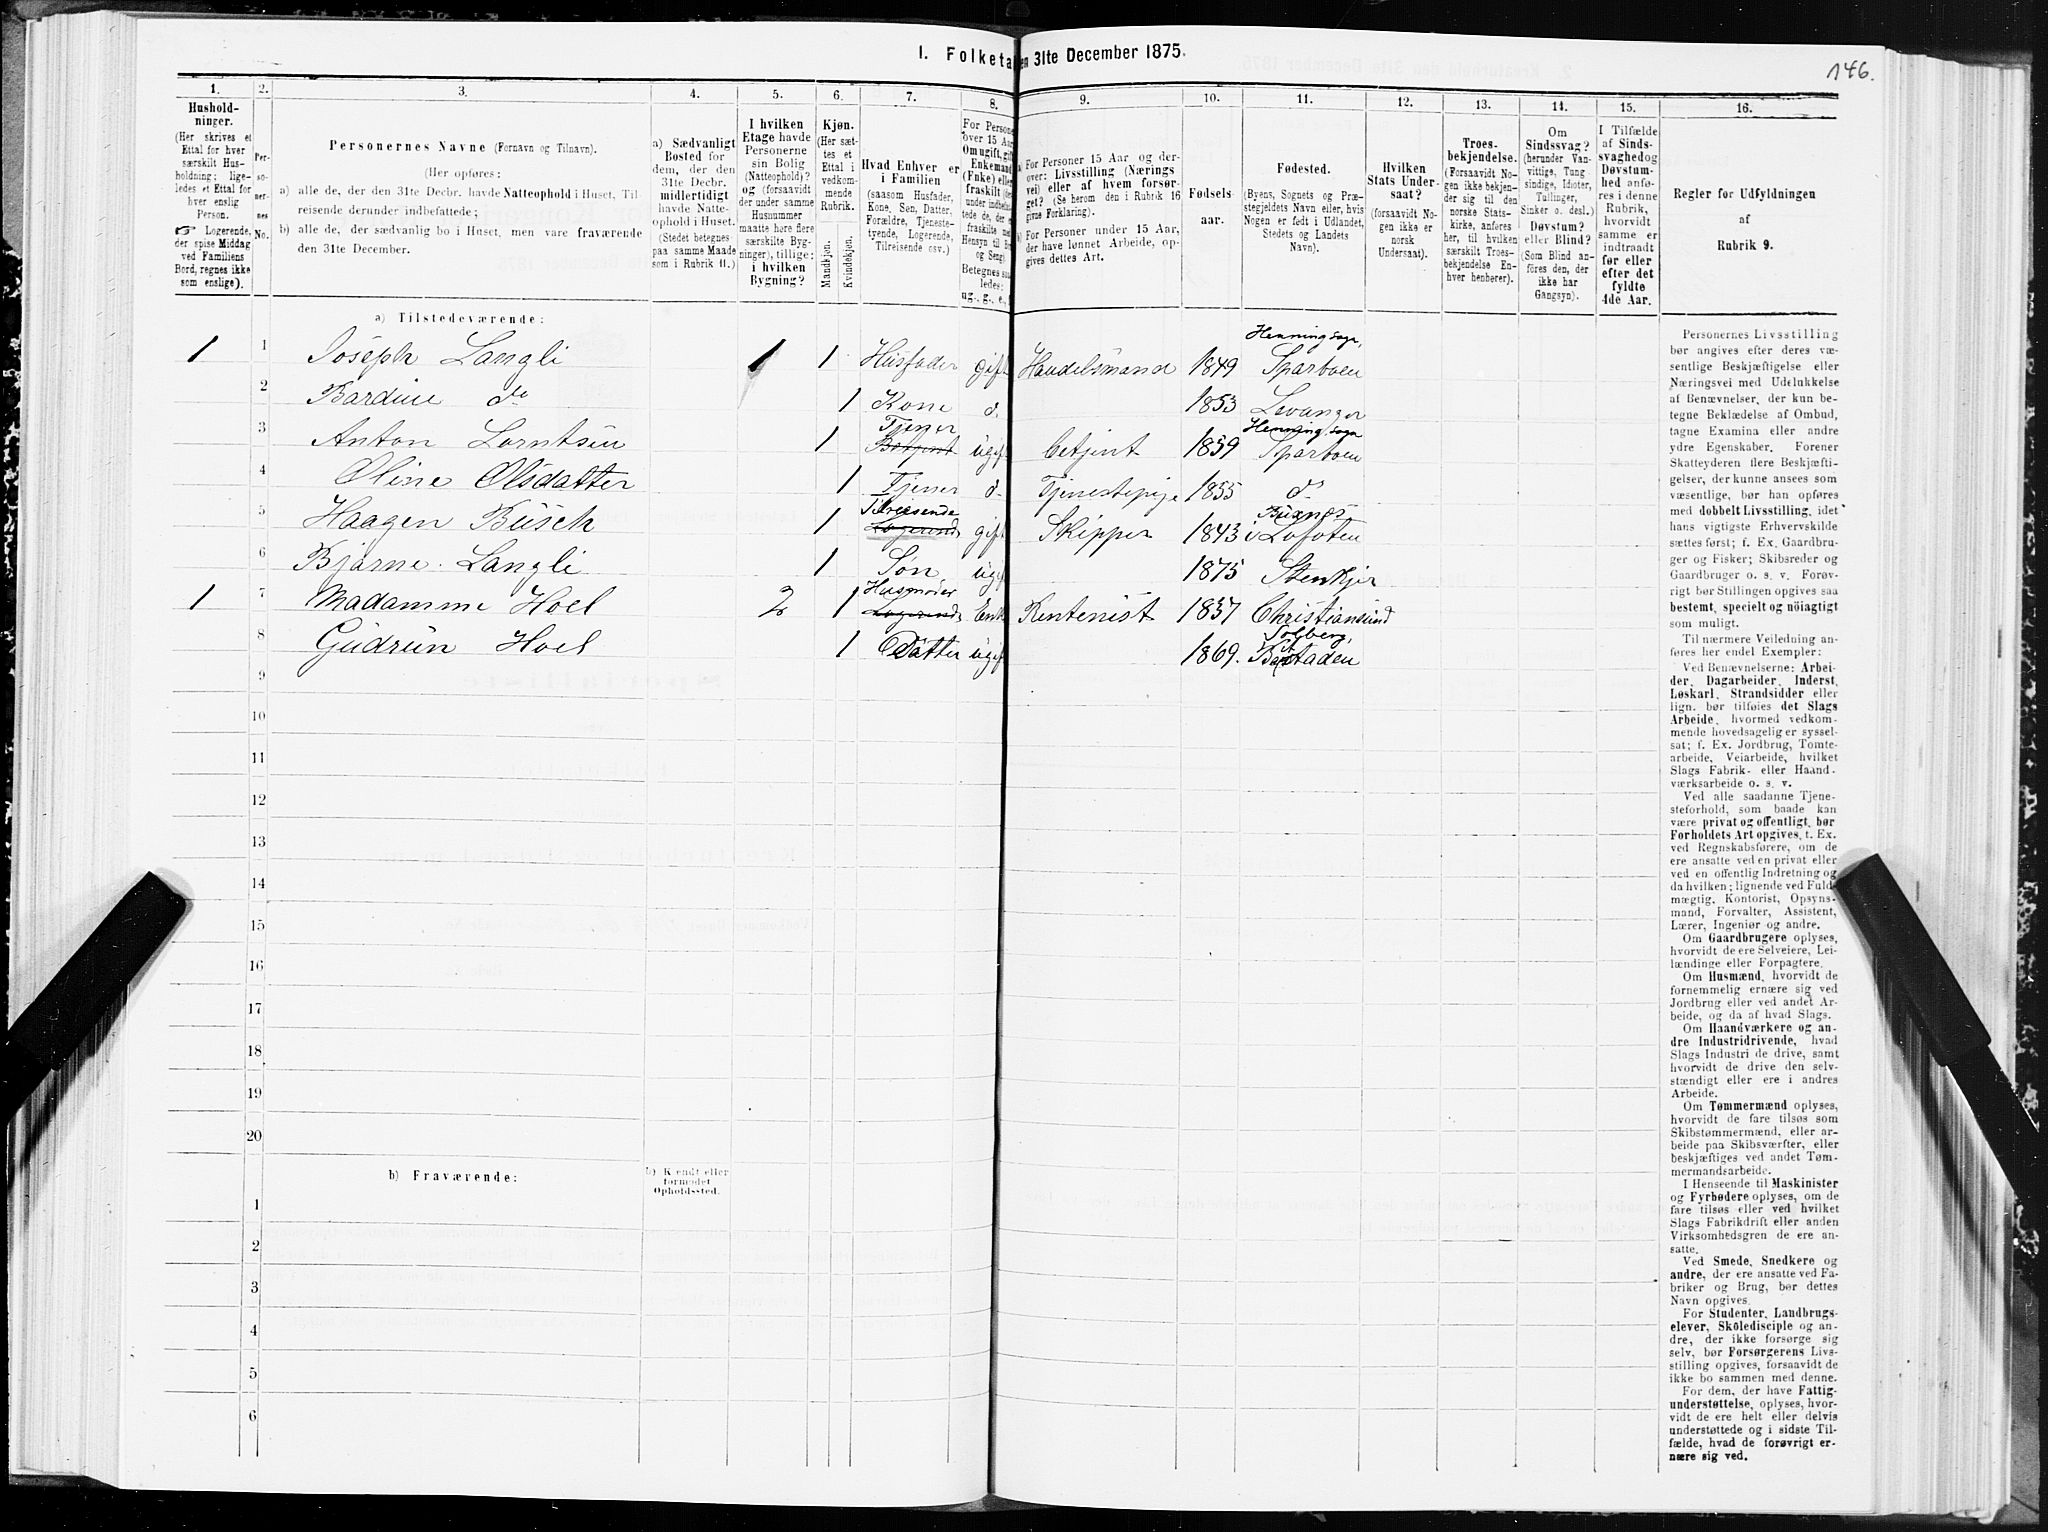 I. Folketa
en 31te December 1875.
146.
1. 2. 3. 4. 5. 6. 7. 8. 9. 10. 11. 12. 13. 14. 15. 16.
Hushold-
ninger.
(Her skrives et
Ettal for hver
særskilt Hus-
holdning; lige-
ledes et Ettal for
hver enslig
Person.
☞ Logerende,
der spise Middag
ved Familiens
Bord, regnes ikke
som enslige).
Per-
so-
ner-
nes
No.
Personernes Navne (Fornavn og Tilnavn).
(Her opføres:
a) alle de, der den 31te Decbr. havde Natteophold i Huset, Til-
reisende derunder indbefattede;
b) alle de, der sædvanlig bo i Huset, men vare fraværende
den 31te December.
a) Sædvanligt
Bosted for
dem, der den
31te Decbr.
midlertidigt
havde Natte-
ophold i Huset.
(Stedet betegnes
paa samme Maade
som i Rubrik 11.)
I hvilken
Etage havde
Personerne
sin Bolig
(Natteophold)?
og (forsaavidt
der under samme
Husnummer
maatte høre flere
særskilte Byg-
ninger), tillige:
i hvilken
Bygning?
Kjøn.
(Her sæt-
tes et
Ettal i
vedkom-
mende
Rubrik.
Mandkjøn.
Kvindekjøn.
Hvad Enhver er
i Familien
(saasom Husfader,
Kone, Søn, Datter,
Forældre, Tjeneste-
tyende, Logerende,
Tilreisende
osv.)
For Persone
over 15 Aar
Om ugift, gi
Enkemand
(Enke) elle
fraskilt
Betegnes saa
ledes:
ug., g., e.,
a For Personer 15 Aar og der-
over: Livsstilling (Nærings
vei) eller af hvem forsør-
get? (Se herom den i Rubrik 16
givne Forklaring).
b For Personer under 15 Aar,
der have lønnet Arbeide, op-
gives dettes Art.
Fødsels-
aar.
Fødested.
(Byens, Sognets og Præ-
stegjeldets Navn eller, hvis
Nogen er født i Udlandet,
Stedets og Landets
Navn).
Hvilken
Stats Under-
saat?
(forsaavidt No-
gen ikke er
norsk
Undersaat).
Troes-
bekjendelse.
(Forsaavidt No-
gen ikke bekjen-
der sig til den
norske Stats-
kirke, anføres
her, til hvilken
særskilt Troes-
bekjendelse En-
hver henhører).
Om
Sindssvag?
(herunder Van-
vittige, Tung
sindige, Idioter,
Tullinger,
Sinker o. desl.)
Døvstum?
eller Blind?
(Som Blind an-
føres den, der
ikke har
Gangsyn).
I Tilfælde
af Sinds-
svaghed og
Døvstum-
hed anfø-
res i denne
Rubrik,
hvorvidt
samme er
indtraadt
før eller
efter det
fyldte
4de Aar.
Regler før Udfyldningen
af
Rubrik 9.
a) Tilstedeværende:
1 1 Joseph Langli 1 1 Husfader gift Handelsmand 1849 Henning sogn, Sparboen
2 Bardine do 1 Kone d. 1853 Levanger
3 Anton Lorntsen 1 Tjener ugift Betjent 1859 Henning sogn Sparboen
4 Oline Olsdatter 1 Tjener d. Tjenestepige 1855 do
5 Haagen Busch 1 Tilreisende Logerende gift Skipper 1843 Buxnes i Lofoten
6 Bjarne Langli 1 Søn ugift 1875 Stenkjer
1 7 Madamme Hoel 2 1 Husmoder Logerende Enke Rentenist 1837 Christiansund
8 Gudrun Hoel 1 Datter ugift 1869. Solberg,
9
10
11
12
13
14
15
16
17
18
19
20
b) Fraværende:
b) Kjendt eller
formodet
Opholdssted.
1
2
3
4
5
6
Personernes Livsstilling
bør angives efter deres væ-
sentlige Beskjæftigelse eller
Næringsvei med Udelukkelse
af Benævnelser, der kun be-
tegne Beklædelse af Ombud,
tagne Examina eller andre
ydre Egenskaber. Forener
Skatteyderen flere Beskjæfti-
gelser, der kunne ansees som
væsentlige, bør han opføres
med dobbelt Livsstilling, idet
hans vigtigste Erhvervskilde
sættes først; f. Ex. Gaardbru-
ger og Fisker; Skibsreder og
Gaardbruger o. s. v. Forøv-
rigt bør Stillingen opgives saa
bestemt, specielt og nöiagtigt
som muligt.
Til nærmere Veiledning an-
føres her endel Exempler:
Ved Benævnelserne: Arbei-
der, Dagarbeider, Inderst,
Løskarl, Strandsidder eller
lign. bør tilføies det Slags
Arbeide, hvormed vedkom-
mende hovedsagelig er syssel-
sat; f. Ex. Jordbrug, Tomte-
arbeide, Veiarbeide, hvilket
Slags Fabrik- eller Haand-
værksarbeide o. s. v.
Ved alle saadanne Tjene-
steforhold, som baade kan
være privat og offentligt, bør
Forholdets Art opgives, t. Ex.
ved Regnskabsførere, om de
ere ansatte ved en privat eller
ved en offentlig Indretning og
da hvilken; lignende ved Fuld-
mægtig, Kontorist, Opsyns-
mand, Forvalter, Assistent,
Lærer, Ingeniør og andre.
Om Gaardbrugere oplyses,
hvorvidt de ere Selveiere, Lei-
lændinge eller Forpagtere.
Om Husmænd, hvorvidt de
fornemmelig ernære sig ved
Jordbrug eller ved andet Ar-
beide, og da af hvad Slags.
Om Haandværkere og an-
dre Industridrivende, hvad
Slags Industri de drive, samt
hvorvidt de drive den selv-
stændigt eller ere i andres
Arbeide.
Om Tømmermænd oplyses,
hvorvidt de fare tilsøs som
Skibstømmermænd, eller ar-
beide paa Skibsværfter, eller
beskjæftiges ved andet Tøm-
mermandsarbeide.
I Henseende til Maskinister
og Fyrbødere oplyses, om de
fare tilsøs eller ved hvilket
Slags Fabrikdrift eller anden
Virksomhedsgren de ere an-
satte.
Ved Smede, Snedkere og
andre, der ere ansatte ved Fa-
briker og Brug, bør dettes
Navn opgives.
For Studenter, Landbrugs-
elever, Skoledisciple og an-
dre, der ikke forsørge sig
selv, bør Forsørgerens Livs-
stilling opgives, forsaavidt de
ikke bo sammen med denne.
For dem, der have Fattig-
understøttelse, oplyses, hvor-
vidt de ere helt eller delvis
understøttede og i sidste Til-
fælde, hvad de forøvrigt er-
nære sig ved.